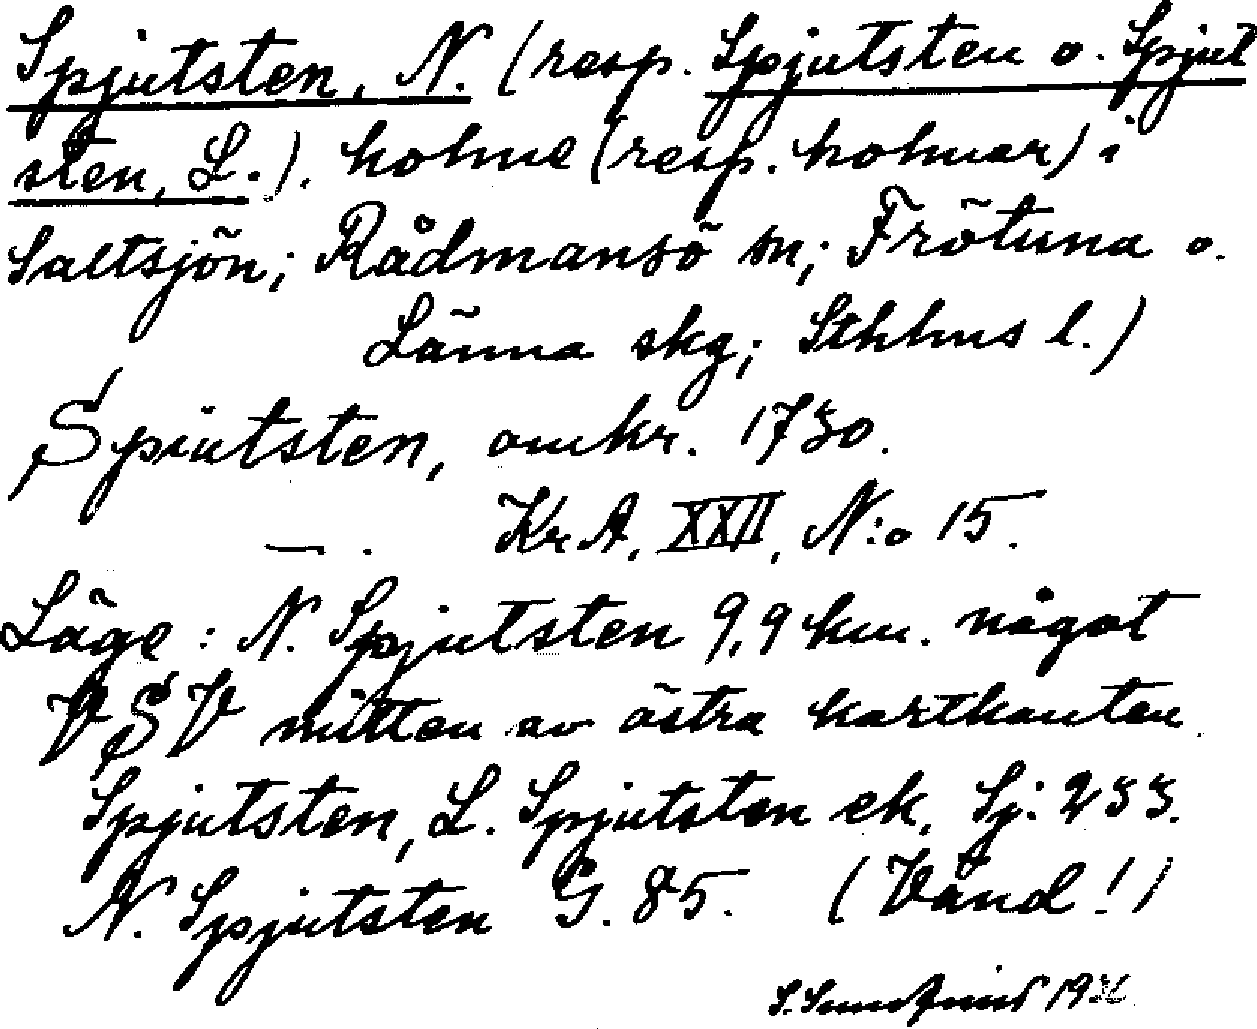 Spjutsten, N. (resp. Spjutsten o. Spjut
sten, L.). holme (resp. holmar) i
Saltsjön; Rådmansö sn; Frötuna o.
Länna skg; Sthlms l.)
Spiutsten, omkr. 1730.
—. KrA, XXII, N:o 15.
Läge: N. Spjutsten 9,9 km. något
VSV mitten av östra kartkanten.
Spjutsten, L. Spjutsten ek. Sj: 233.
N. Spjutsten G. 85. (Vänd!)